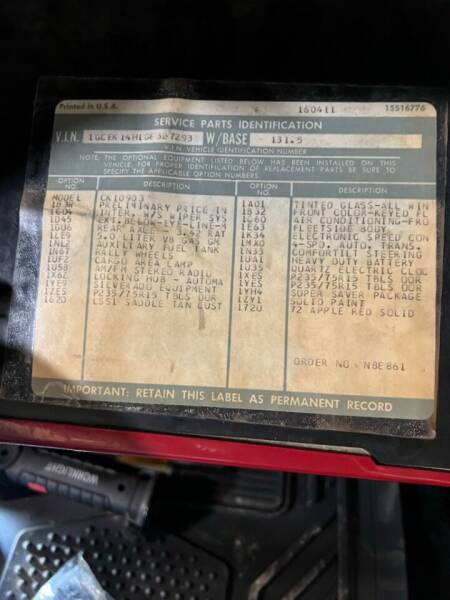 Printed in U.S.A. 160411 15516776
SERVICE PARTS IDENTIFICATION
V.I.N. W/BASE 131.5
V.I.N. VEHICLE IDENTIFICATION NUMBER
NOTE: THE OPTIONAL EQUIPMENT LISTED BELOW HAS BEEN INSTALLED ON THIS
VEHICLE. FOR PROPER IDENTIFICATION OF REPLACEMENT PARTS BE SURE TO
SPECIFY THE APPLICABLE OPTION NUMBERS.
OPTION NO. DESCRIPTION OPTION NO. DESCRIPTION
MODEL CK10903 1A01 TINTED GLASS-ALL WIN
PRELIMINARY PRICE IN 1B32 FRONT COLOR-KEYED FL
INTER. W/S WIPER SYS 1C60 AIR CONDITIONING-FRO
1E63 FLEETSIDE BODY
1GU6 REAR AXLE - 3.42 RAT 1K34 ELECTRONIC SPEED CON
1LE9 5.0 LITER V8 GAS GM 1MX0 4-SPD. AUTO. TRANS.
1NL2 AUXILIARY FUEL TANK 1N33 COMFORTILT STEERING
1N67 RALLY WHEELS 1UA1 HEAVY DUTY BATTERY
1UF2 CARGO AREA LAMP 1U35 QUARTZ ELECTRIC CLOC
1U58 AM/FM STEREO RADIO 1XES P235/75R15 TBLS OOR
1X6Z LOCKING HUB - AUTOMA 1YES P235/75R15 TBLS OOR
1YE9 SILVERADO EQUIPMENT 1YH4 SUPER SAVER PACKAGE
1ZES P235/75R15 TBLS OOR 1ZY1 SOLID PAINT
162D L55I SADDLE TAN CUST 172U 72 APPLE RED SOLID
ORDER NO. N8E861
IMPORTANT: RETAIN THIS LABEL AS PERMANENT RECORD
WORKLIGHT